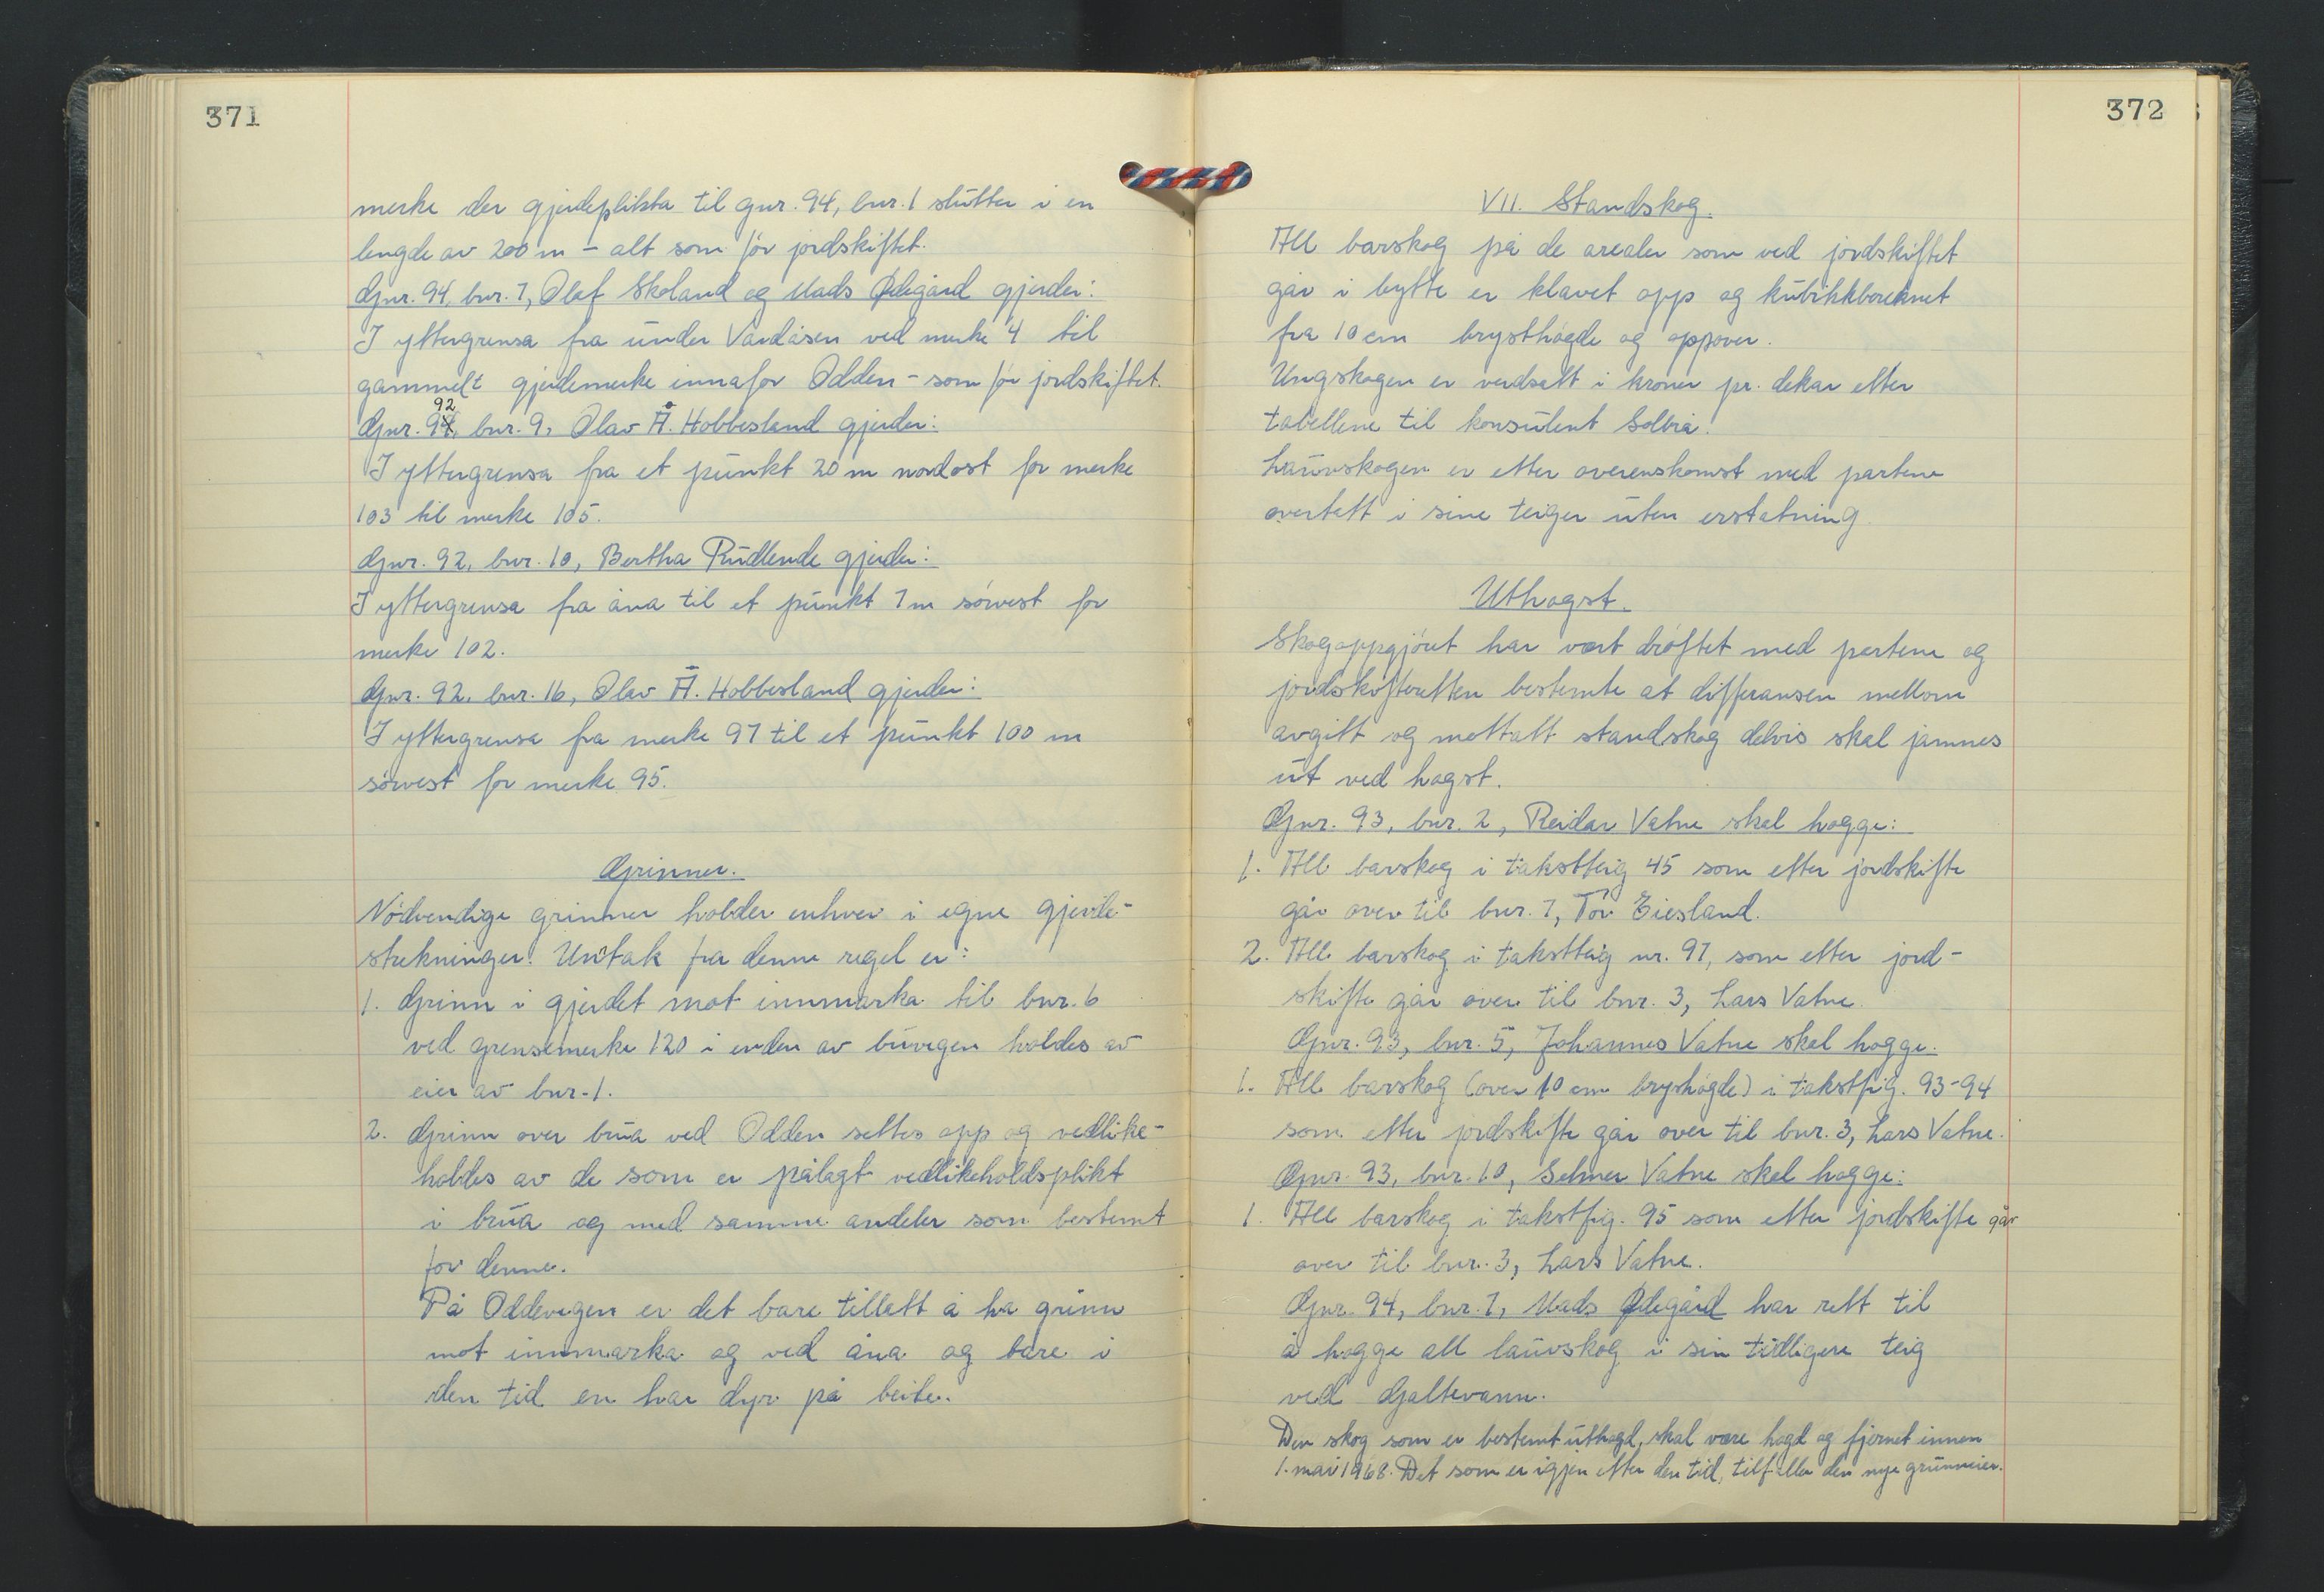 371
merke der gjerdeplikta til gnr. 94, bnr. 1 slutter i en
lengde av 200 m – alt som før jordskiftet.
Gnr. 94, bnr. 7, Olaf Skoland og Mads Ødegård gjerder:
I yttergrensa fra under Vardåsen ved merke 4 til
gammelt gjerdemerke innafor Odden – som før jordskiftet.
92
Gnr. 94, bnr. 9, Olav Å. Hobbesland gjerder:
I yttergrensa fra et punkt 20 m nordost for merke
103 til merke 105.
Gnr. 92, bnr. 10, Bertha Rudlende gjerder:
I yttergrensa fra åna til et punkt 7 m sørvest for
merke 102.
Gnr. 92, bnr. 16, Olav Å. Hobbesland gjerder:
I yttergrensa fra merke 97 til et punkt 100 m
sørvest for merke 95.
Grinner.
Nødvendige grinner holder enhver i egne gjerde-
strekninger. Untak fra denne regel er:
1. Grinn i gjerdet mot innmarka til bnr. 6
ved grensemerke 120 i enden av buvegen holdes av
eier av bnr. 1.
2. Grinn over brua ved Odden settes opp og vedlike-
holdes av de som er pålagt vedlikeholdsplikt
i brua og med samme andeler som bestemt
for denne.
På Oddevegen er det bare tillatt å ha grinn
mot innmarka og ved åna og bare i
den tid en har dyr på beite.
372
VII. Standskog.
All barskog på de arealer som ved jordskiftet
går i bytte er klavet opp og kubikkbereknet
fra 10 cm brysthøgde og oppover.
Ungskogen er verdsatt i kroner pr. dekar etter
tabellene til konsulent Solbraa.
Lauvskogen er etter overenskomst med partene
overtatt i sine teiger uten erstatning.
Uthogst.
Skogoppgjøret har vært drøftet med partene og
jordskifteretten bestemte at differansen mellom
avgitt og mottatt standskog delvis skal jamnes
ut ved hogst.
Gnr. 93, bnr. 2, Reidar Vatne skal hogge:
1. All barskog i takstteig 45 som etter jordskifte
går over til bnr. 7, Tór Eiesland.
2. All barskog i takstteig nr. 97, som etter jord-
skifte går over til bnr. 3, Lars Vatne.
Gnr. 93, bnr. 5, Johannes Vatne skal hogge.
1. All barskog (over 10 cm bryshøgde) i takstfig. 93-94
som etter jordskifte går over til bnr. 3, Lars Vatne.
Gnr. 93, bnr. 10, Selmer Vatne skal hogge:
1. All barskog i takstfig. 95 som etter jordskifte går
over til bnr. 3, Lars Vatne.
Gnr. 94, bnr. 7, Mads Ødegård har rett til
å hogge all lauvskog i sin tidligere teig
ved Galtevann.
Den skog som er bestemt uthogd, skal være hogd og fjernet innen
1. mai 1968. Det som er igjen etter den tid, tilfaller den nye grunneier.